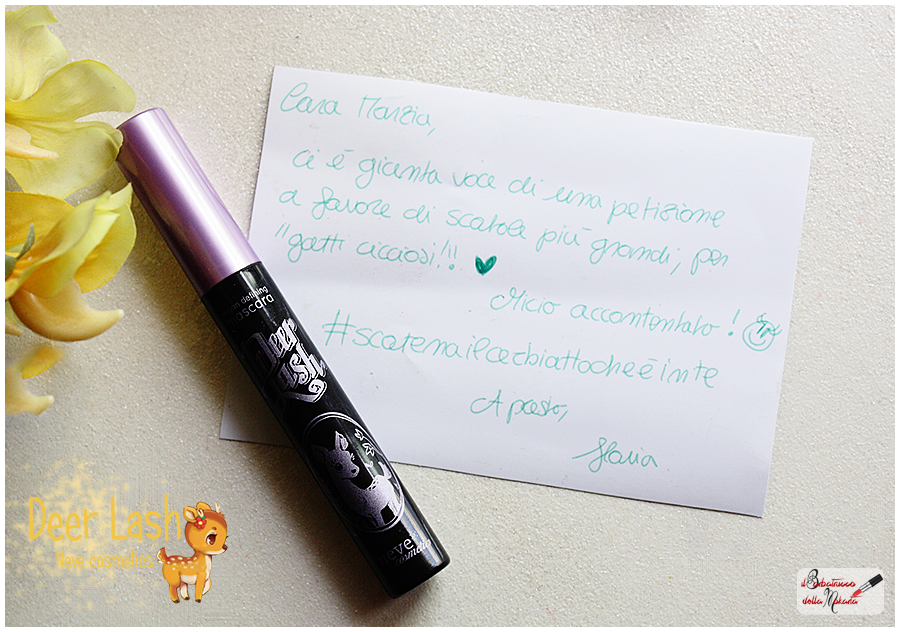 Cara Marzia,
ci è giunta voce di una petizione
a favore di scatole più grandi, per
"gatti cicciosi!!
Micio accontentato!
#scatenailcerbiattocheèinte
A presto,
Ilaria
defining
mascara
Deer
Lash
neve
cosmetics
Deer Lash
Neve cosmetics
il Barbatrucco
della Makeria